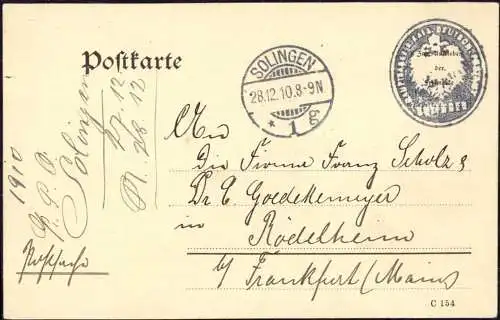 Postkarte
SOLINGEN
28.12.10.8-9N
* 1 g
An
die Firma Franz Scholz &
Dr C Goedekemeyer
in
Rödelheim
b/ Frankfurt (Main)
C 154
1910
Solingen
27.12
28.12
Postsache